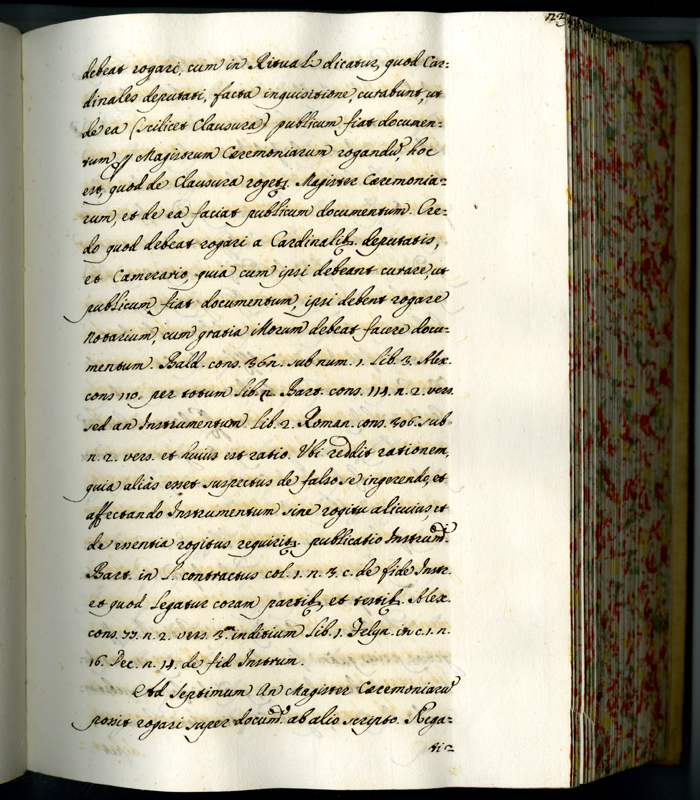 debeat rogari, cum in Rituali dicatur, quod Car=
dinales deputati, facta inquisitione, curabunt, ut
de ea (scilicet Clausura) publicum fiat documen=
tum Magistrum Cæremoniarum rogandũ, hoc
est, quod de Clausura roget Magister Cæremonia=
rum, et de ea faciat publicum documentum. Cre=
do quod debeat rogari a Cardinalib. deputatis,
et Camerario, quia cum ipsi debeant curare, ut
publicum fiat documentum, ipsi debent rogare
Notarium, cum gratia illorum debeat facere docu=
mentum. Bald. cons. sub num. 1. lib. 3. Alex.
cons. 110. per totum lib. Bart. cons. 114. n. 2. vers.
sed an Instrumentum. lib. 2. Roman. cons. 306. sub
n. 2. vers. et huius est ratio. Ubi reddit rationem,
quia aliàs esset suspectus de falso se ingerendo, et
affectando Instrumentum sine rogitu alicuius et
de essentia rogitus requirit. publicatio Instrum.
Bart. in l. contractus col. 1. n. 3. c. de fide Instr.
et quod legatur coram partib. et testib. Alex.
cons. 77. n. 2. vers. inditium lib. 1. Felyn. in c. 1. n.
16. Dec. n. 14. de fid Instrum.
Ad septimum An Magister Cæremoniarũ
possit rogari super docum. ab alio scripto. Nega=
ti=